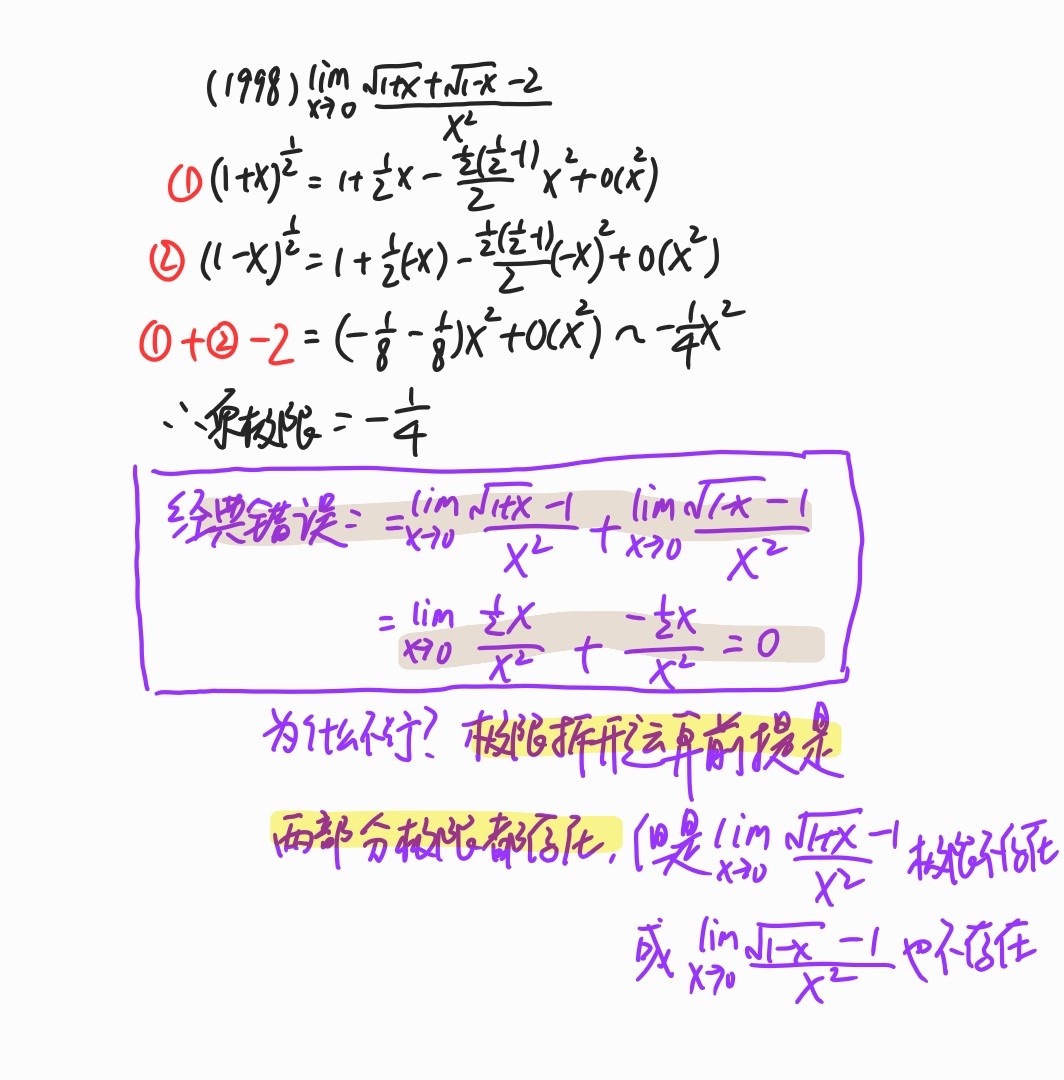 (1998) lim x→0 (√(1+x)+√(1-x)-2)/x²
① (1+x)^(1/2) = 1+(1/2)x-((1/2)((1/2)-1)/2)x²+o(x²)
② (1-x)^(1/2) = 1+(1/2)(-x)-((1/2)((1/2)-1)/2)(-x)²+o(x²)
①+②-2 = (-1/8-1/8)x²+o(x²) ~ -(1/4)x²
∴原极限 = -1/4
经典错误: = lim x→0 (√(1+x)-1)/x² + lim x→0 (√(1-x)-1)/x²
= lim x→0 ((1/2)x)/x² + (-(1/2)x)/x² = 0
为什么不行? 极限拆开运算前提是
两部分极限都存在, 但是 lim x→0 (√(1+x)-1)/x² 极限不存在
或 lim x→0 (√(1-x)-1)/x² 也不存在